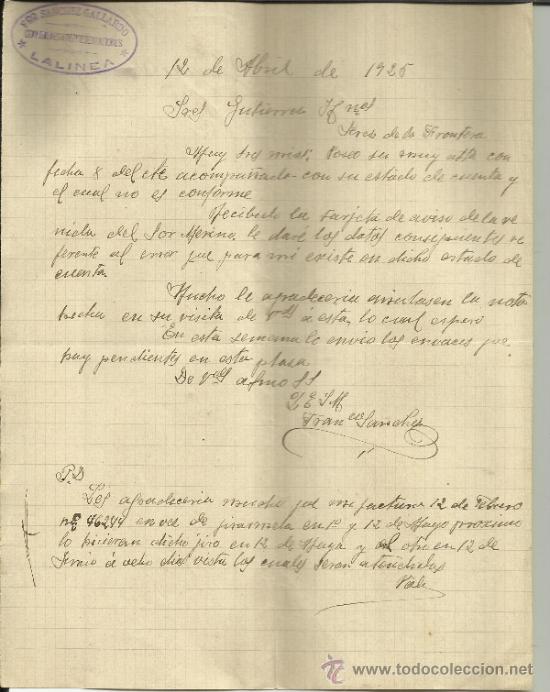 FCO SANCHEZ GALLARDO
LA LINEA
12 de Abril de 1925
Sres Gutierrez Hnos
Jerez de la Frontera
Muy Sres mios: su muy atta con
fecha 8 del cte acompañado con su estado de cuenta y
el cual no es conforme
Recibido la tarjeta de aviso de la ve
nida del Sor Merino, le daré los datos consiguientes re
ferente al error que para mi existe en dicho estado de
cuenta.
Mucho le agradeceria anulasen la nota
hecha en su visita de Vds á esta, lo cual espero
En esta semana le envio los envaces que
hay pendientes en esta plaza
De Vds afmo SS
Q E S M
Franco Sanchez
P.D
Les agradeceria mucho que mi factura 12 de Febrero
nº 46244 en vez de girarmela en 1º y 12 de Mayo proximo
lo hicieran dicho jiro en 12 de Mayo y otro en 12 de
Junio á ocho dias vista los cuales seran atendidos
Vale
www.todocoleccion.net